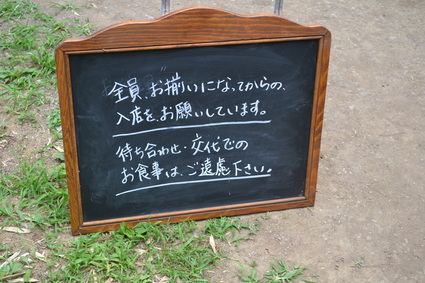 全員、お揃いになってからの、
入店を、お願いしています。
待ち合わせ・交代での
お食事は、ご遠慮下さい。